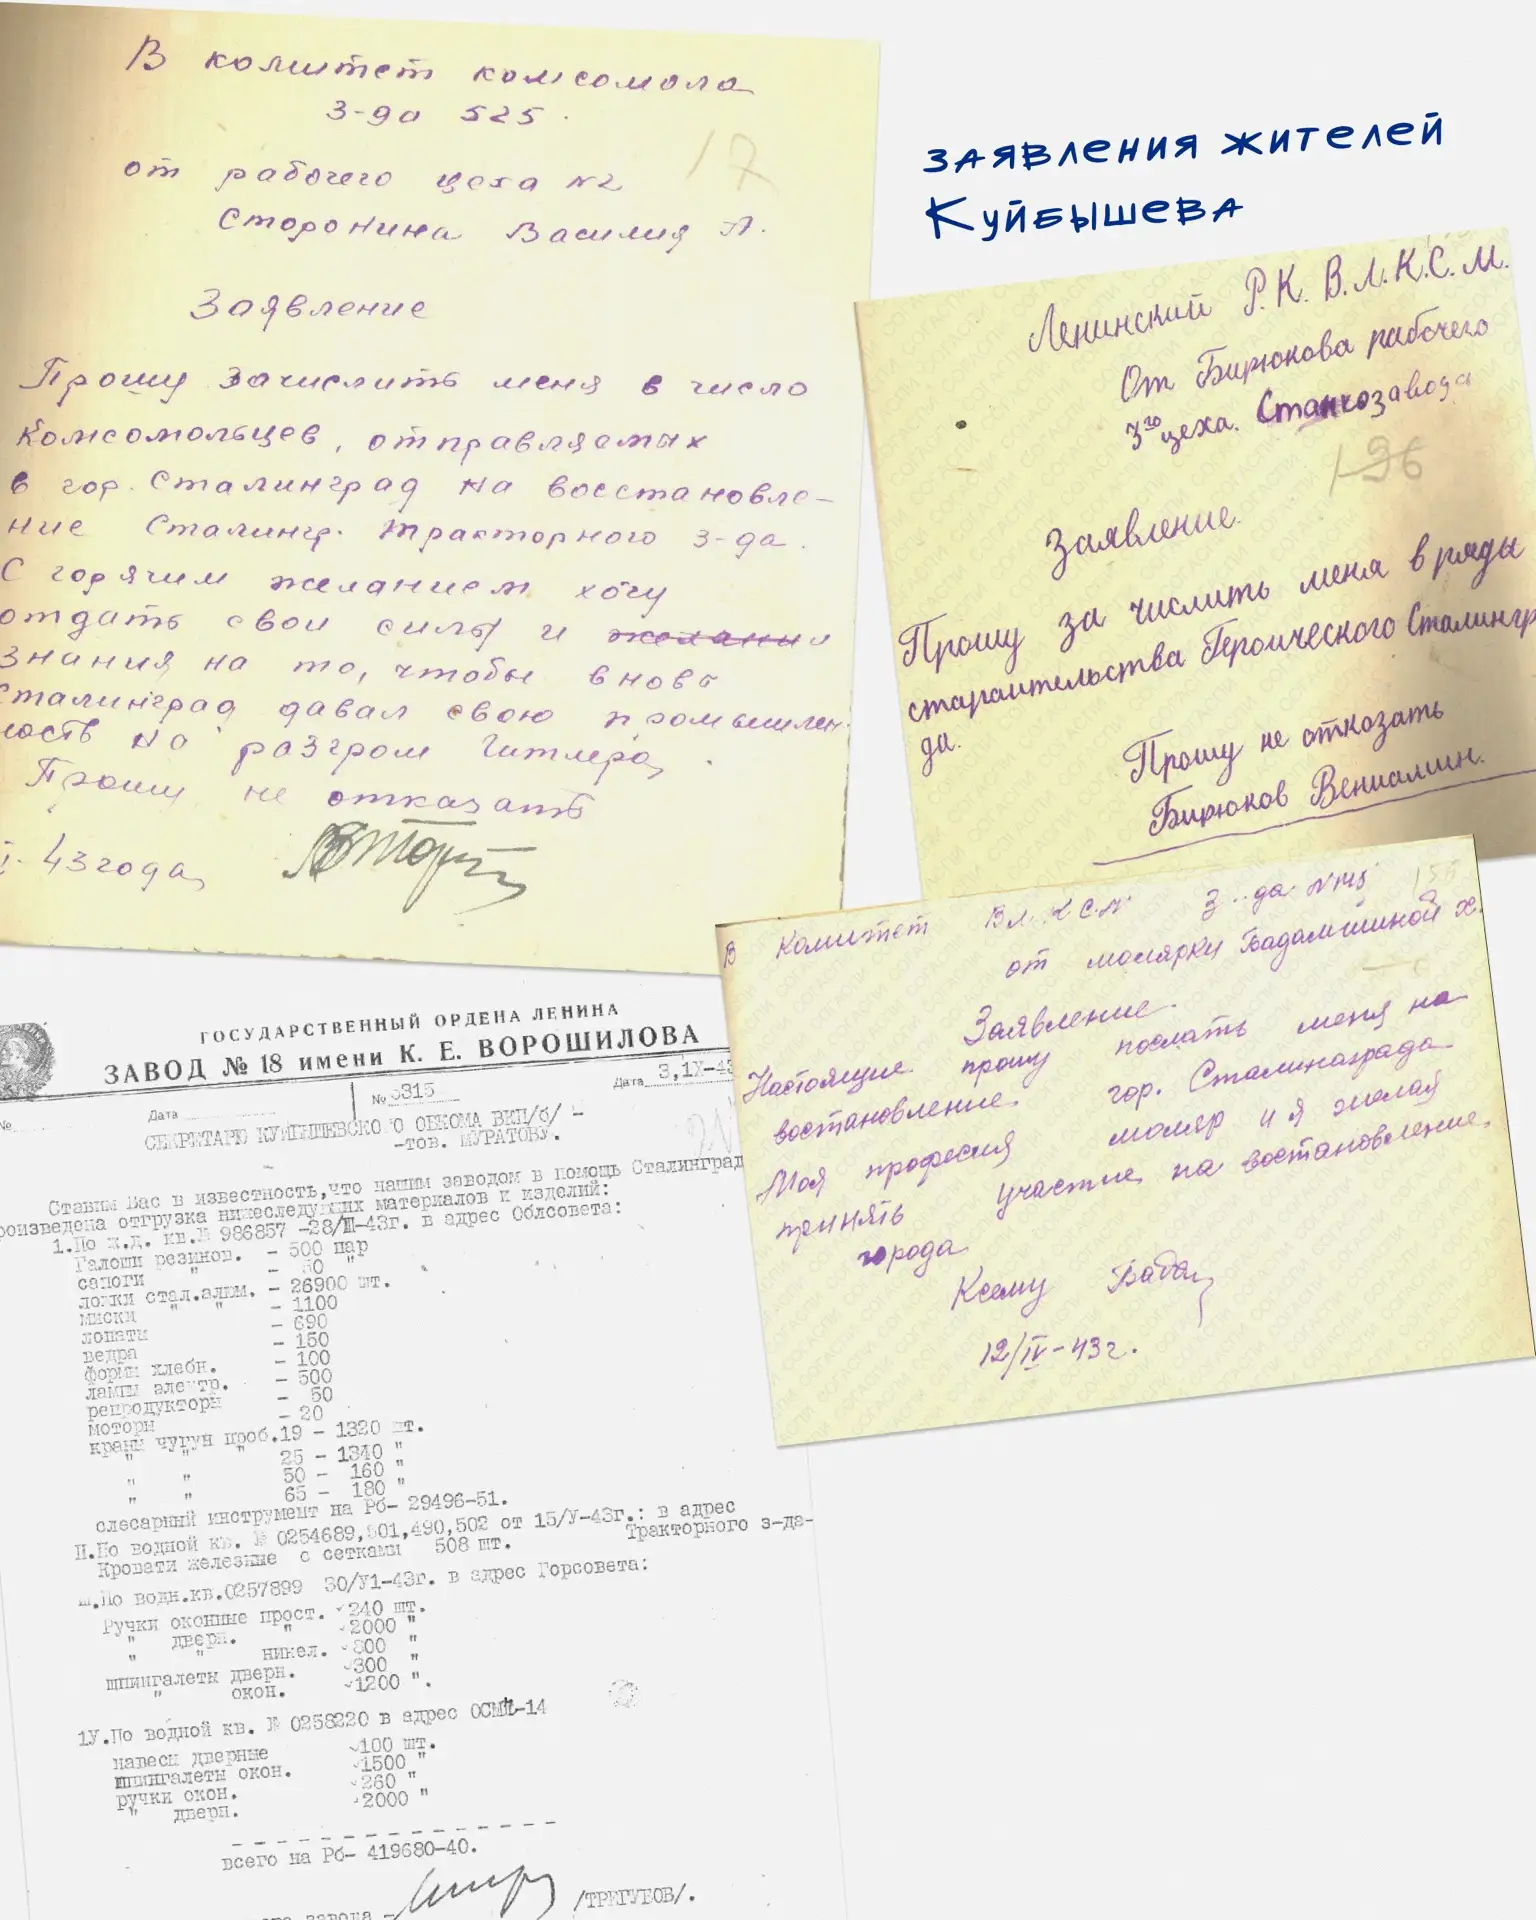 В комитет комсомола
З-да 525.
17
от рабочего цеха №2
Сторонина Василия А.
Заявление
Прошу зачислить меня в число
комсомольцев, отправляемых
в гор. Сталинград на восстановле-
ние Сталингр. тракторного з-да.
С горячим желанием хочу
отдать свои силы и
знания на то, чтобы вновь
Сталинград давал свою промышлен-
ность на разгром Гитлера.
Прошу не отказать
43 года
заявления жителей
Куйбышева
Ленинский Р.К. В.Л.К.С.М.
От Бирюкова рабочего
3го цеха. Станкозавода
196
Заявление.
Прошу за числить меня в ряды
Героического Сталингр
да.
Прошу не отказать
Бирюков Вениамин.
В комитет ВЛКСМ З-да
от молярки Бадамшиной Х.
Заявление.
Настоящие прошу послать меня на
востановление гор. Сталинаграда
Моя професия моляр и я желаю
принять участие на востановление
города
К сему Бада
12/IV-43г.
ГОСУДАРСТВЕННЫЙ ОРДЕНА ЛЕНИНА
ЗАВОД № 18 имени К. Е. ВОРОШИЛОВА
№ 5315 Дата 3,1X-43
№ Дата
СЕКРЕТАРЮ КУЙБЫШЕВСКОГО ОБКОМА ВКП/б/
-тов. МУРАТОВУ.
Ставим Вас в известность,что нашим заводом в помощь Сталинград
роизведена отгрузка нижеследующих материалов и изделий:
1.По ж.д. кв.№ 986857 -28/Ш-43г. в адрес Облсовета:
Галоши резинов. - 500 пар
сапоги " - 50 "
ложки стал.алюм. - 26900 шт.
миски " " - 1100
лопаты - 690
ведра - 150
формы хлебн. - 100
лампы электр. - 500
репродукторы - 50
моторы - 20
краны чугун проб.19 - 1320 шт.
" " " 25 - 1340 "
" " 50 - 160 "
" " 65 - 180 "
слесарный инструмент на Рб- 29496-51.
П.По водной кв. № 0254689,501,490,502 от 15/У-43г.: в адрес
Тракторного з-да-
Кровати железные с сетками 508 шт.
Ш.По водн.кв.0257899 30/У1-43г. в адрес Горсовета:
Ручки оконные прост. 240 шт.
" дверн. " 2000 "
" " никел. 800 "
шпингалеты дверн. 300 "
" окон. 1200 ".
1У.По водной кв. № 0258220 в адрес ОСМЧ-14
навесы дверные 100 шт.
шпингалеты окон. 1500 "
ручки окон. 260 "
" дверн. 2000 "
всего на Рб- 419680-40.
завода - /ТРЕГУБОВ/.